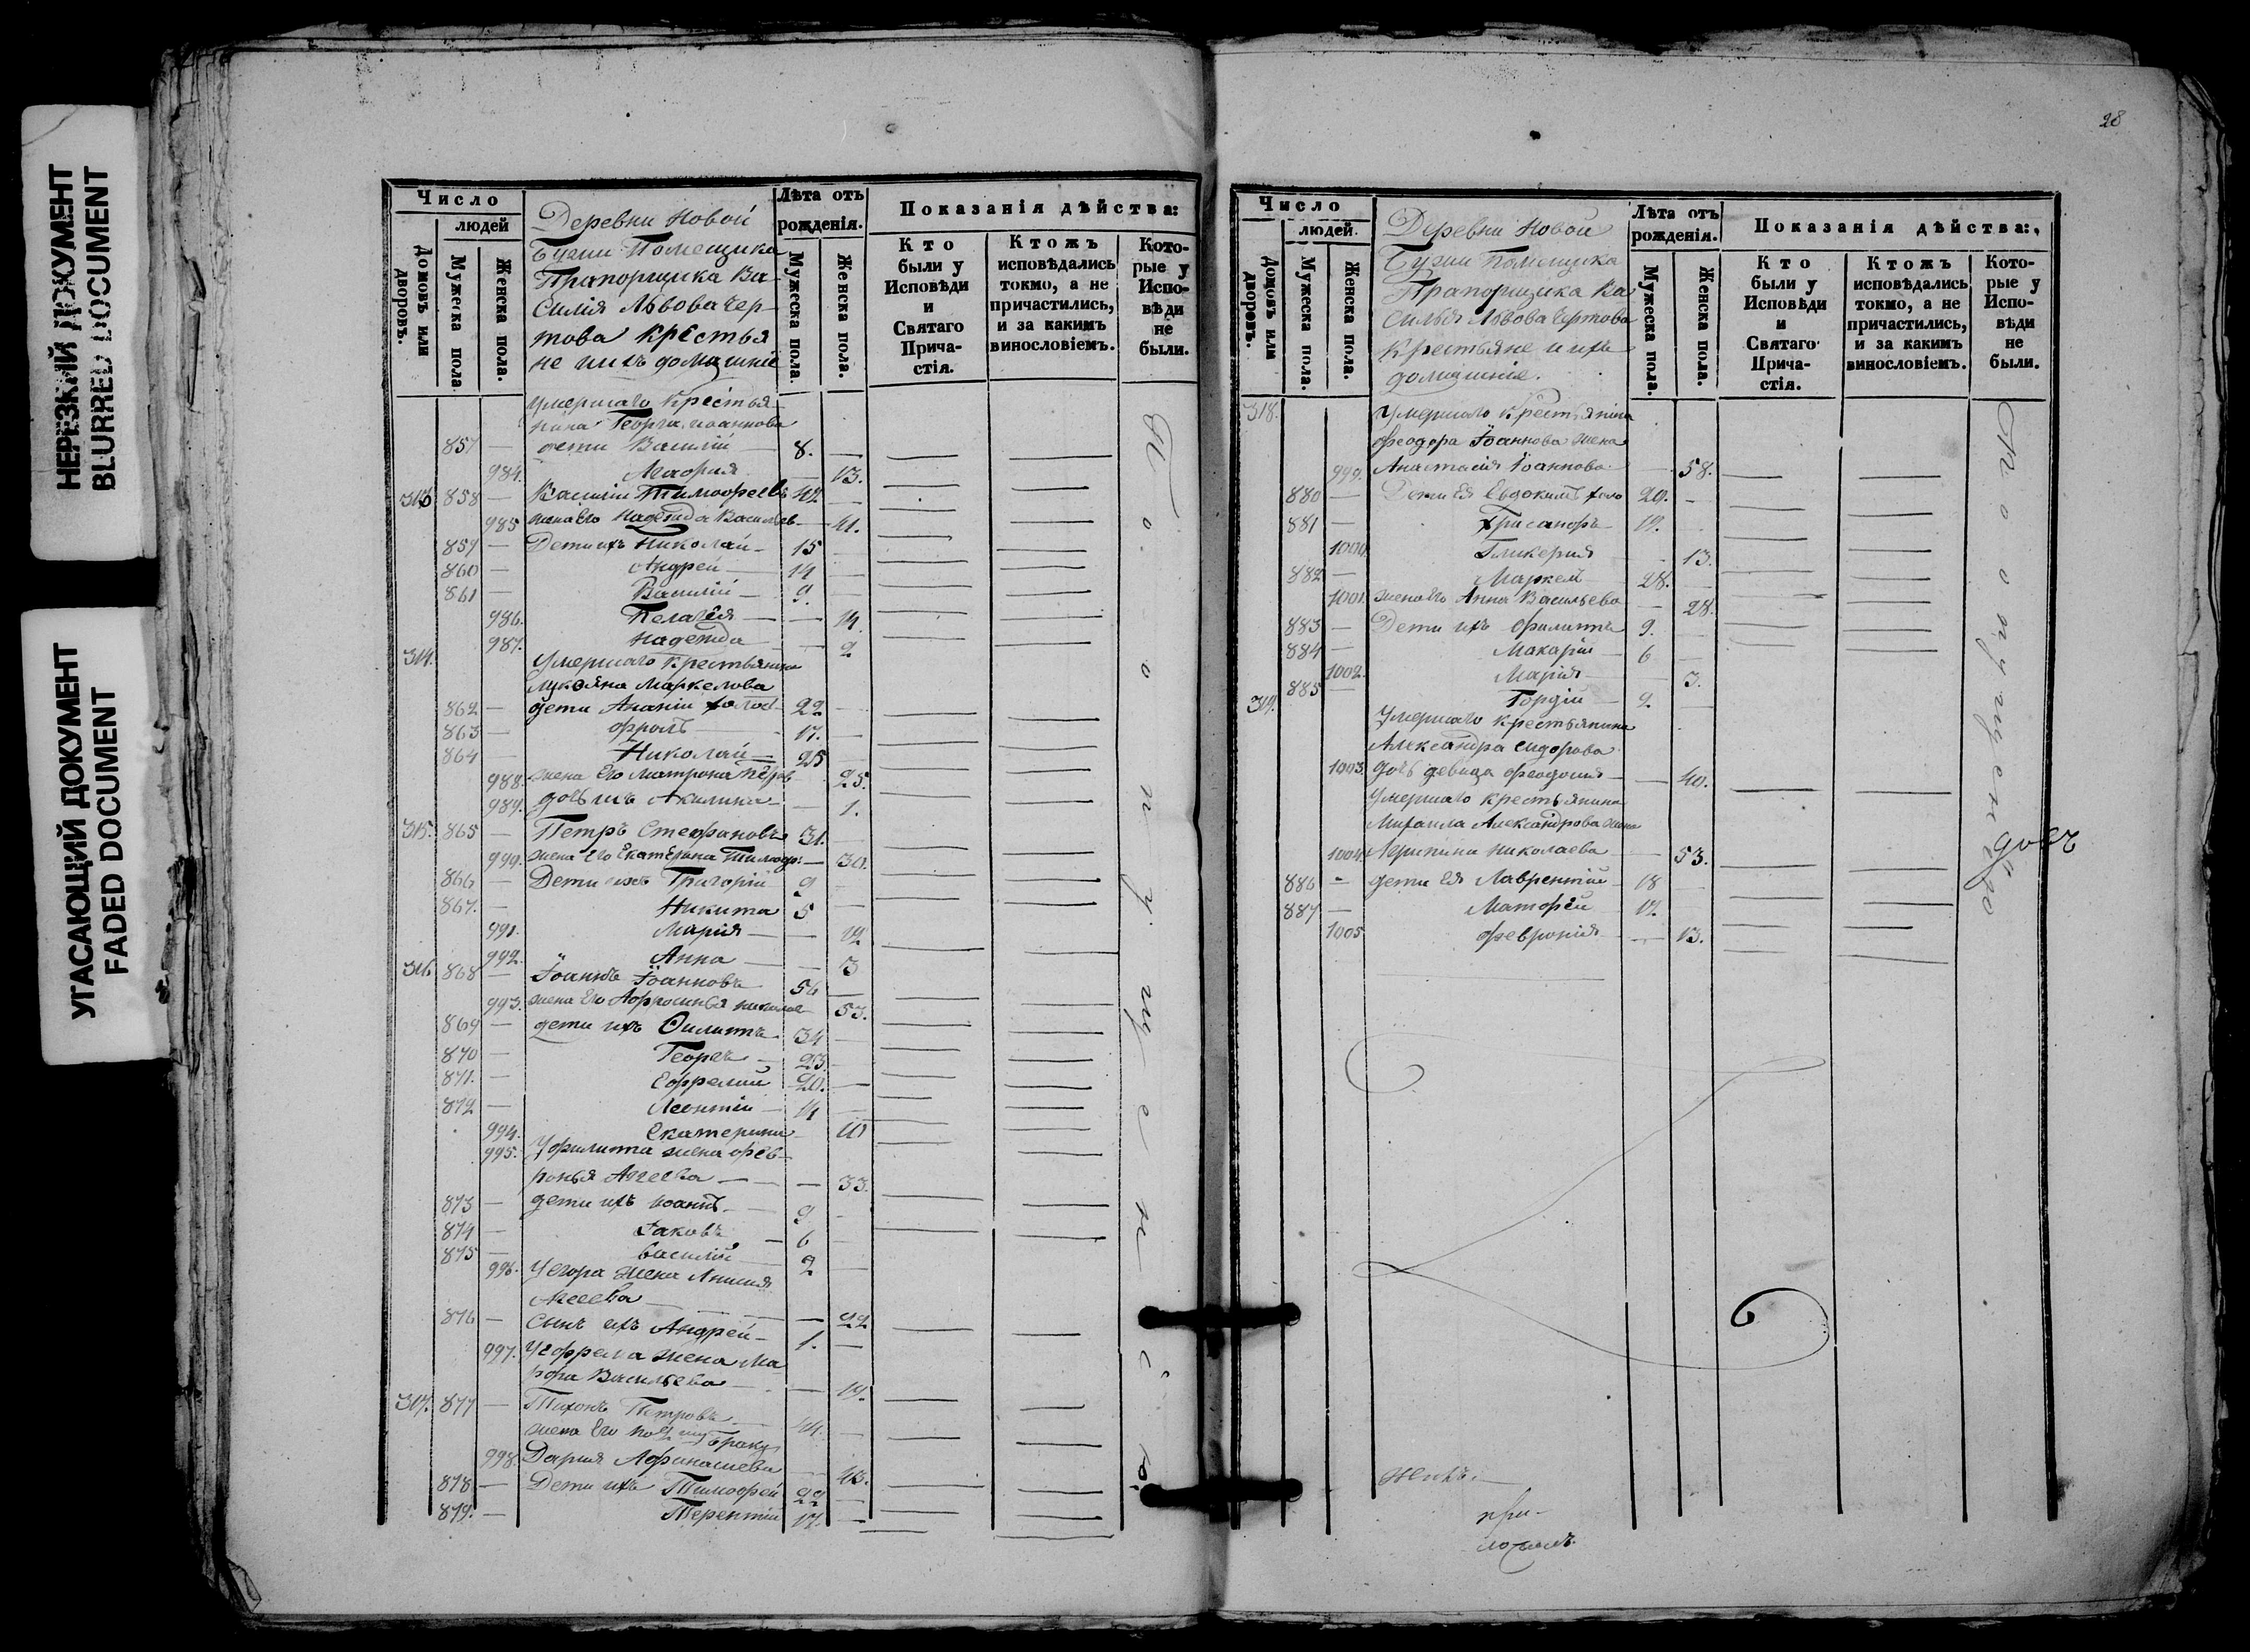 НЕРЕЗКИЙ ДОКУМЕНТ
BLURRED DOCUMENT
УГАСАЮЩИЙ ДОКУМЕНТ
FADED DOCUMENT
Число
людей
Домовъ или дворовъ.
Мужеска пола.
Женска пола.
Деревни Новой
Помещика
Прапорщика Ва-
силія Львова Чер-
това крестья
не и ихъ домашніе
Лѣта отъ
рожденія.
Мужеска пола.
Женска пола.
Показанія дѣйства:
Кто были у Исповѣди и Святаго Причастія.
Ктожъ исповѣдались токмо, а не причастились, и за какимъ винословіемъ.
Которые у Исповѣди не были.
умершаго крестья-
нина Георгія Иоаннова
857 — дети Василій — 8. —
984. 13.
313 858 — Василій Тимофеевъ 42 —
985 жена его Надежда Васильев — 41.
859 — Дети ихъ Николай — 15
860 — Андрей — 14 —
861 — Василій — 9. —
986. Пелагея — — 14.
987. Надежда — — 2
314. Умершаго крестьянина
Лукояна Маркелова
862 — дети Ананій холос 22 —
863 — Фролъ 17. —
864 Николай — 25
988. жена его Матрона Петров 25.
989. дочь ихъ Акилина — — 1.
315. 865 — Петръ Стефановъ 31. —
990. жена его Екатерина Тимоф: — 30.
866 — Дети ихъ Григорій 9 —
867. — Никита 5 —
991. Марія — — 12
992. Анна — — 3
316 868 — Іоаннъ Іоанновъ 56
993. жена его Афросинья Николае 53.
869 — дети ихъ Филиппъ 34 —
870 — Георгъ — 23.
871. — Ефремій 20. —
872 — Леонтій — 14 —
994. Екатерина 10
995. У Филиппа жена Фев-
ронья Агеева — — — 33.
873 — дети ихъ Иоаннъ — 9 —
874 — Іаковъ — 6 —
875 — Василій 2 —
996. У Егора жена Анисия
Агеева — 22
876 — Сынъ ихъ Андрей — 1. —
997. У Ефрема жена Ма
рфа Васильева — — 19.
317. 877 — Тихонъ Петровъ — 44. —
жена его по 2му браку
998. Дарья Афанасиева 43.
878 — Дети ихъ Тимофей 22 —
879. — Терентій 17. —
28
Число
людей.
Домовъ или дворовъ.
Мужеска пола.
Женска пола.
Деревни Новой
Помещика
Прапорщика Ва
силья Львова Чертова
Крестьяне и ихъ
домашние.
Лѣта отъ
рожденія.
Мужеска пола.
Женска пола.
Показанія дѣйства:
Кто были у Исповѣди и Святаго Причастія.
Ктожъ исповѣдались токмо, а не причастились, и за какимъ винословіемъ.
Которые у Исповѣди не были.
318. Умершаго крестьянина
Феодора Іоаннова жена
999. Анастасія Іоаннова — 58.
880 — Дети ея Евдокимъ холо 20. —
881 — Хрисанфъ — 19.
1000. Гликерия — 13.
882 — Маркелъ 28. —
1001. жена его Анна Васильева — 28.
883 — Дети ихъ Филиппъ 9. —
884 — Макарій 6 —
1002. Марія — — 3.
885 — Гордій — 2. —
319. Умершаго крестьянина
Александра Сидорова
1003. дочь девица Феодосия — — 40.
Умершаго крестьянина
Михаила Александрова жена
1004. Агрипина Николаева — — 53.
886 — дети ея Лаврентій — 18 —
887 — Матофей 12. —
1005 Феврония — — 13.